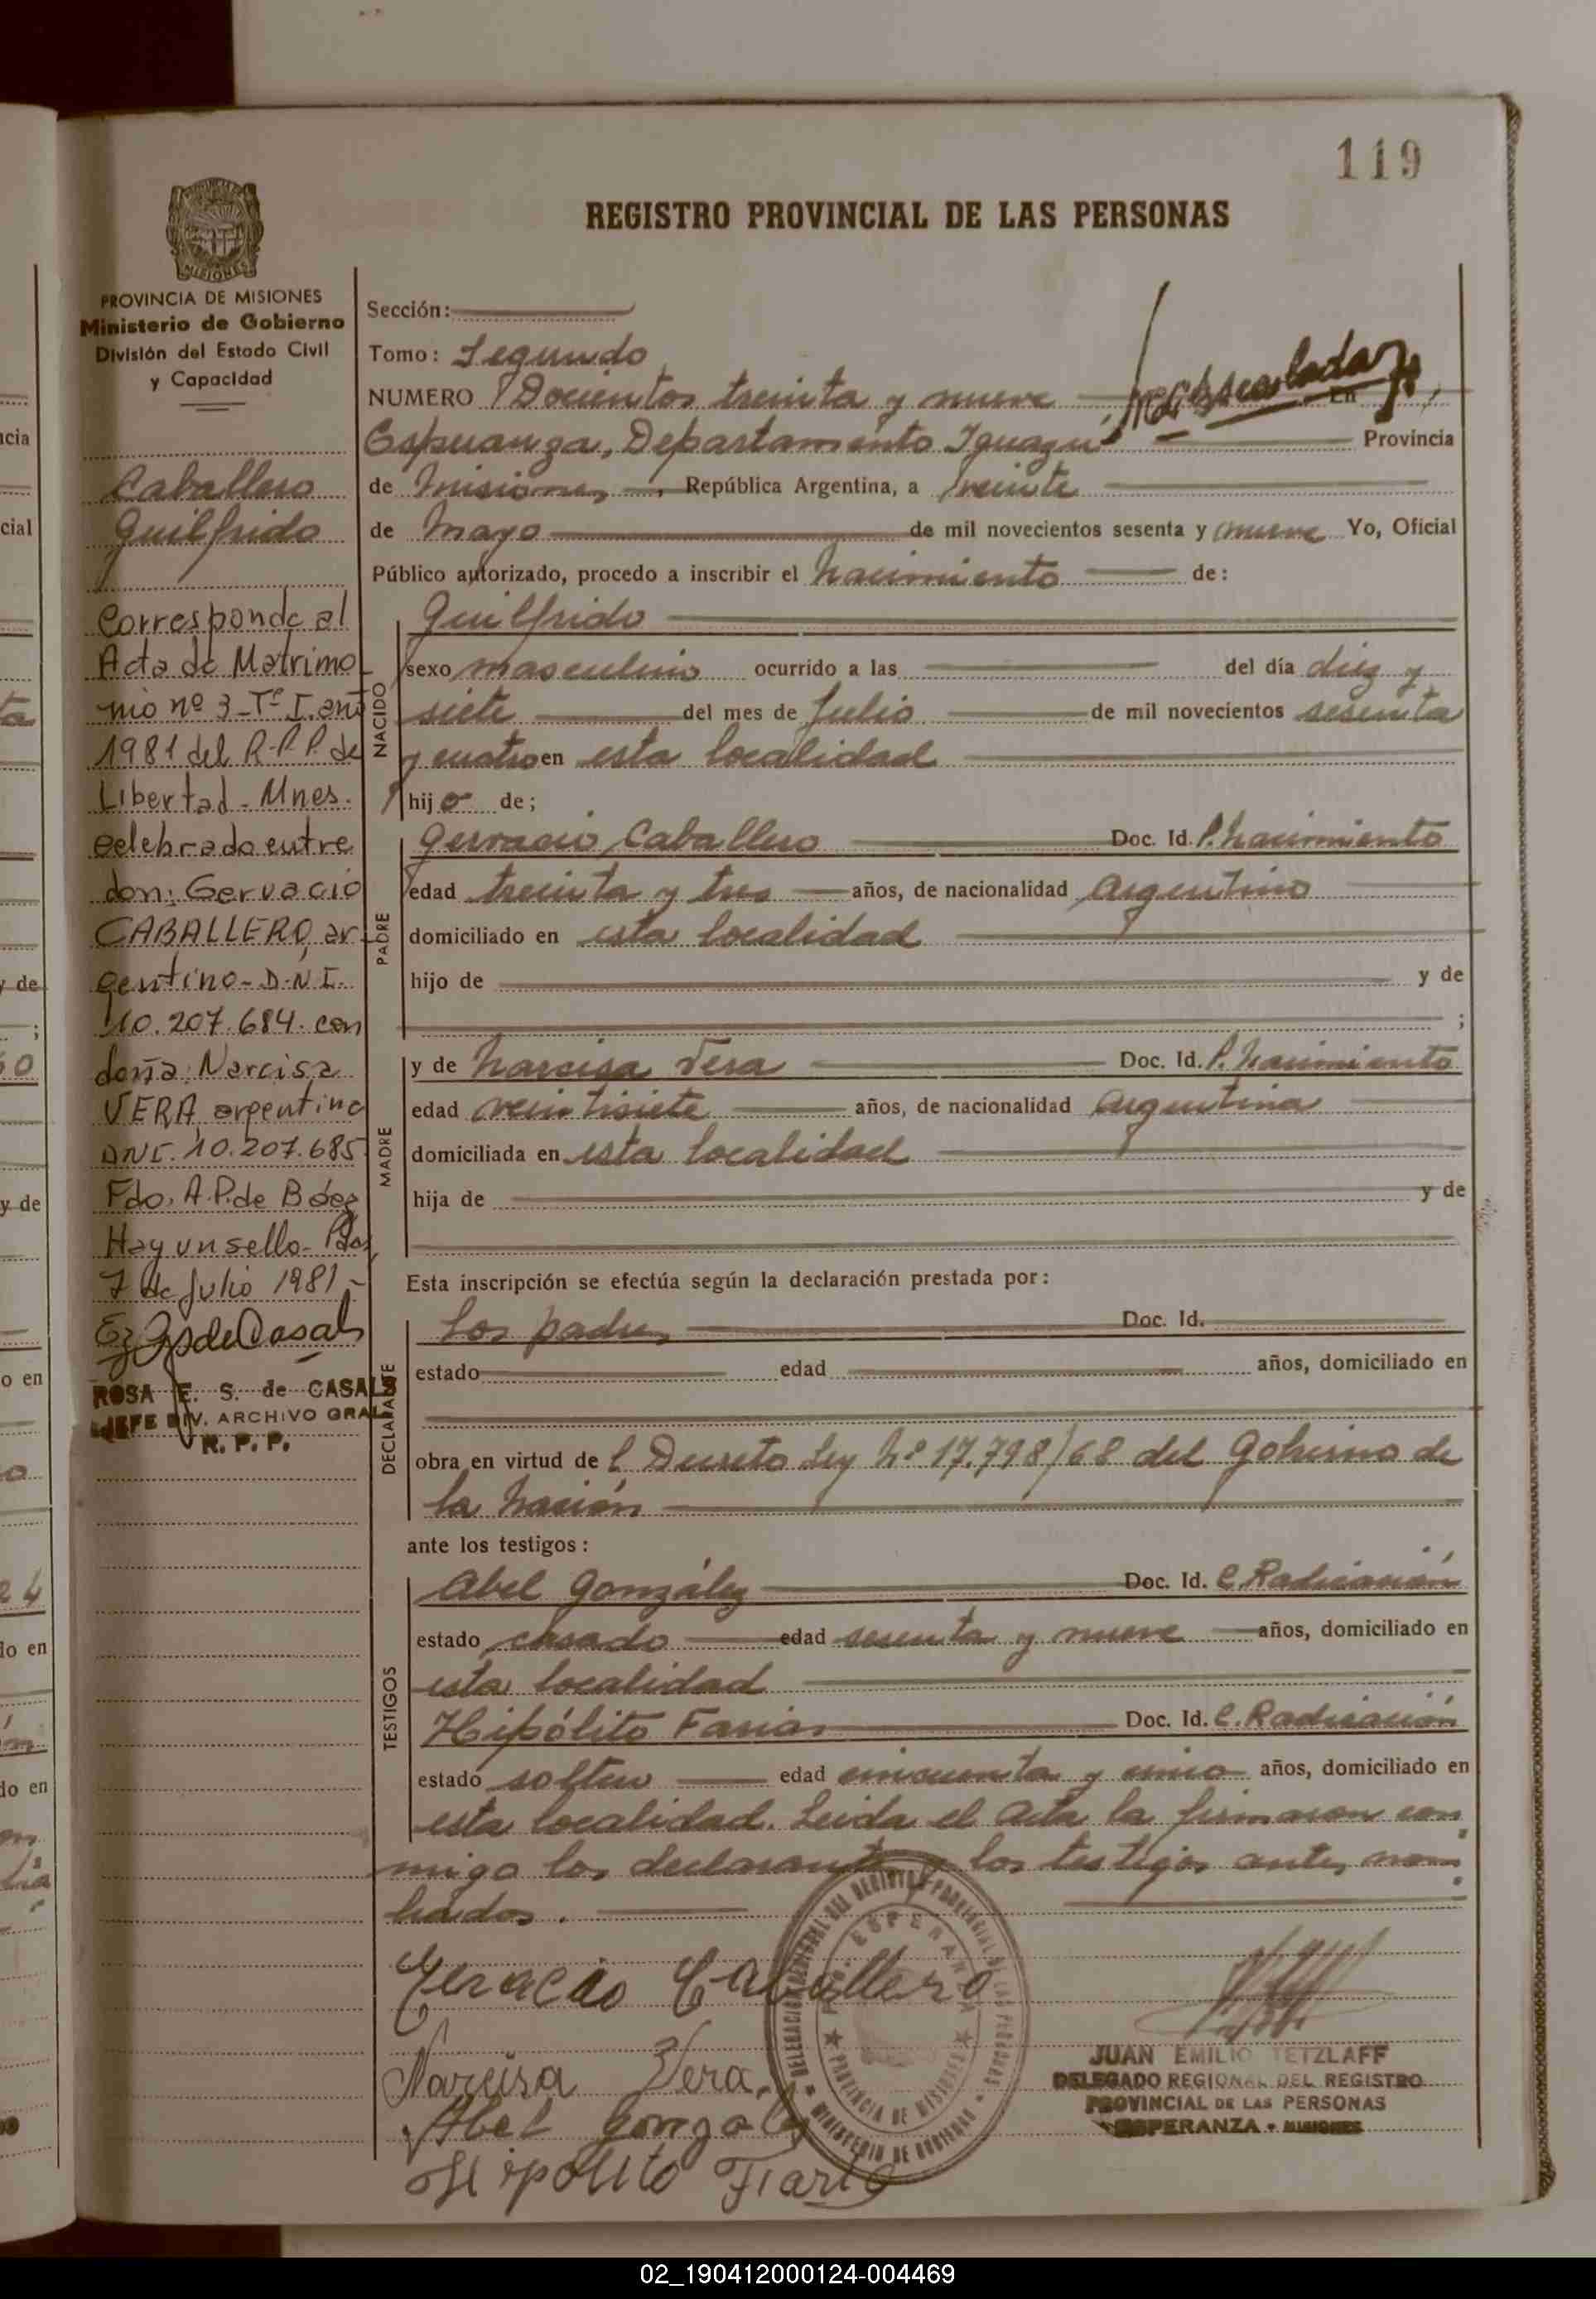 119
REGISTRO PROVINCIAL DE LAS PERSONAS
MISIONES
PROVINCIA DE MISIONES
Ministerio de Gobierno
División del Estado Civil
y Capacidad
Caballero
Guilfrido
Corresponde al
Acta de Matrimo
nio nº 3-Tº I. año
1981 del R.P.P. de
Libertad - Mnes.
celebrado entre
don: Gervacio
CABALLERO, ar-
gentino - D.N.I.
10.207.684. con
doña: Narcisa
VERA, argentina
DNI. 10.207.685
Fdo. A.P. de Báez
Hay un sello - Pdas,
7 de Julio 1981.-
ROSA E. S. de CASALS
JEFE DIV. ARCHIVO GRAL
R. P. P.
Sección:
Tomo: Segundo
NUMERO Docientos treinta y nueve En
Esperanza, Departamento Iguazú Provincia
de Misiones, República Argentina, a veinte
de Mayo de mil novecientos sesenta y nueve Yo, Oficial
Público autorizado, procedo a inscribir el Nacimiento de:
NACIDO
Guilfrido
sexo masculino ocurrido a las del día diez y
siete del mes de Julio de mil novecientos sesenta
y cuatro en esta localidad
hijo de;
PADRE
Gervacio Caballero Doc. Id. P. Nacimiento
edad treinta y tres años, de nacionalidad Argentino
domiciliado en esta localidad
hijo de y de
;
MADRE
y de Narcisa Vera Doc. Id. P. Nacimiento
edad veintisiete años, de nacionalidad Argentina
domiciliada en esta localidad
hija de y de
Esta inscripción se efectúa según la declaración prestada por:
DECLARANTE
Los padres Doc. Id.
estado edad años, domiciliado en
obra en virtud de l Decreto Ley Nº 17.798/68 del Gobierno de
la Nación
ante los testigos:
TESTIGOS
Abel González Doc. Id. C. Radicación
estado casado edad sesenta y nueve años, domiciliado en
esta localidad
Hipólito Farias Doc. Id. C. Radicación
estado soltero edad cincuenta y cinco años, domiciliado en
esta localidad. Leida el Acta la firmaron con
migo los declarantes y los testigos antes nom
brados.
Geracio Caballero
Narcisa Vera
Abel Gonzalez
Hipolito Fiaria
ESPERANZA
PROVINCIA DE MISIONES
MINISTERIO DE GOBIERNO
JUAN EMILIO TETZLAFF
DELEGADO REGIONAL DEL REGISTRO
PROVINCIAL DE LAS PERSONAS
ESPERANZA - MISIONES
02_190412000124-004469